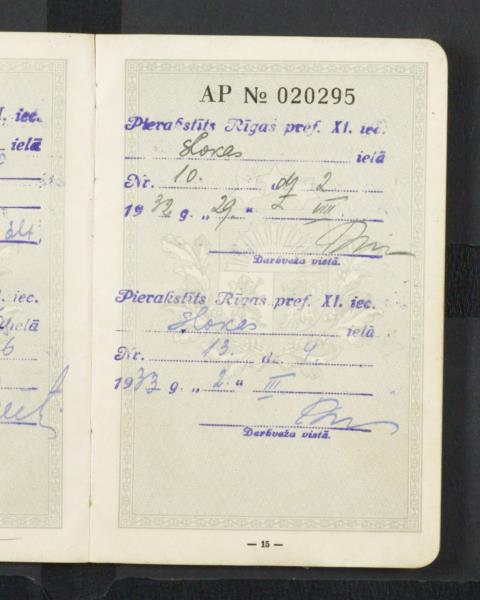 I. iec.
ielā
I. iec.
ielā
6
AP № 020295
Pierakstīts Rīgas pref. XI. iec.
Slokas ielā
Nr. 10. dz 2
1932 g. „29“ VIII.
Darbveža vietā.
Pierakstīts Rīgas pref. XI. iec.
Slokas ielā
Nr. 13. dz. 4.
1933 g. „2.“ III
Darbveža vietā.
— 15 —